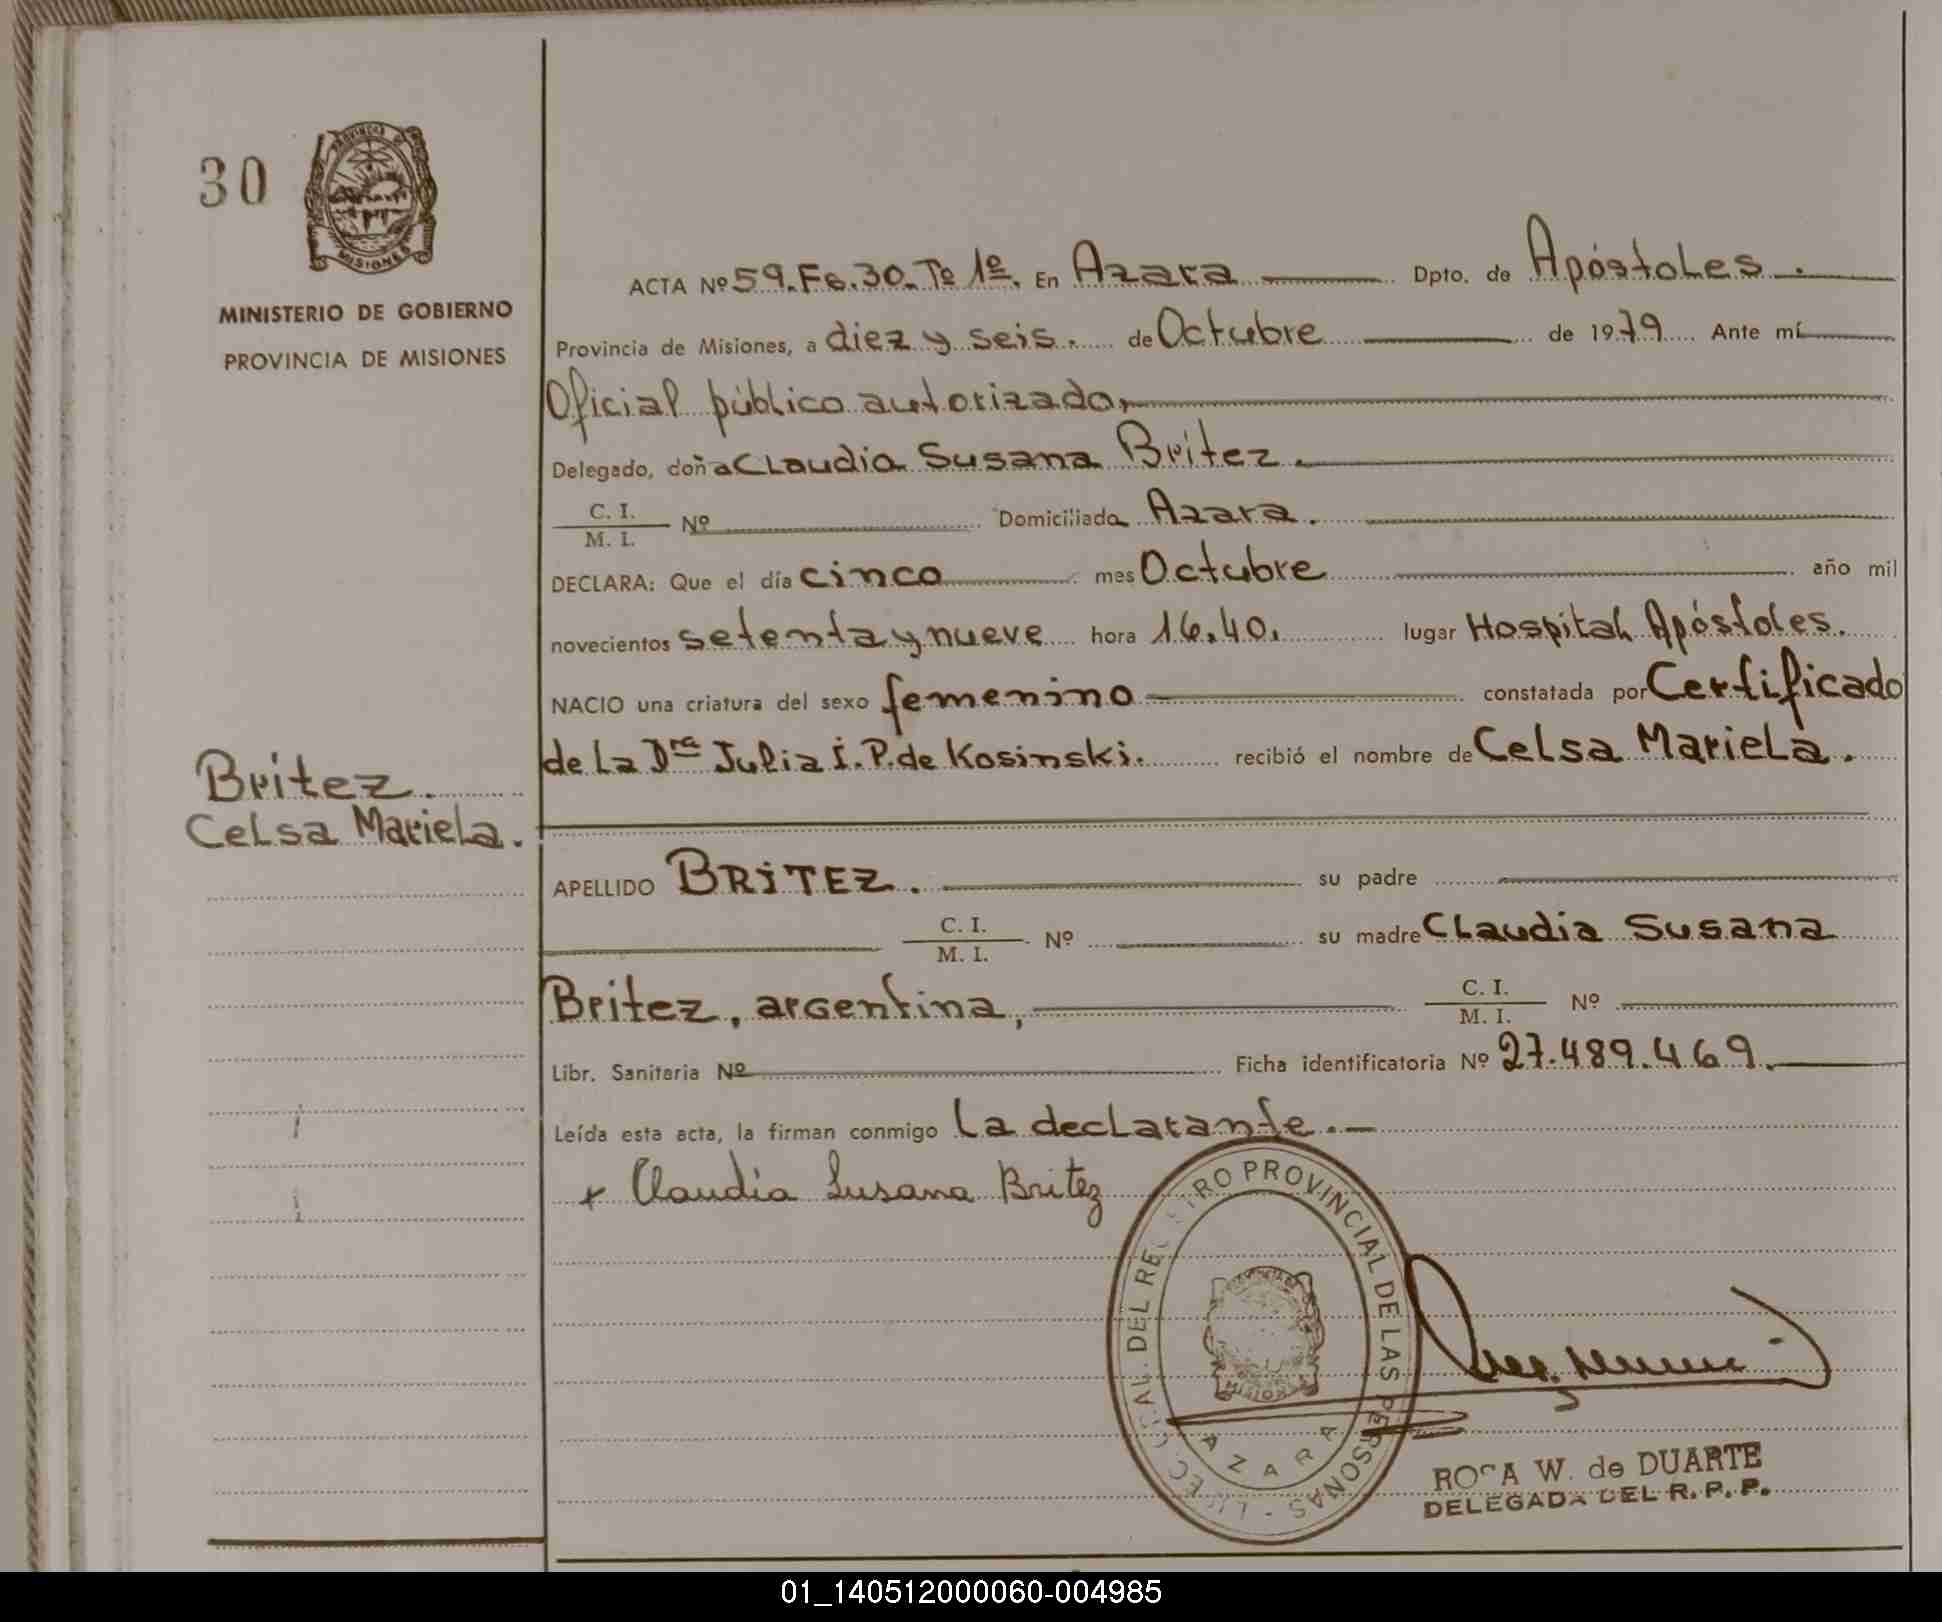 30
PROVINCIA DE
MISIONES
MINISTERIO DE GOBIERNO
PROVINCIA DE MISIONES
ACTA Nº 59. Fº. 30. Tº 1º. En Azara Dpto. de Apóstoles.
Provincia de Misiones, a diez y seis. de Octubre de 1979 Ante mí
Oficial público autorizado,
Delegado, doña Claudia Susana Britez.
C. I.
M. I. Nº Domiciliada Azara.
DECLARA: Que el día cinco mes Octubre año mil
novecientos setenta y nueve hora 16.40. lugar Hospital Apóstoles.
NACIO una criatura del sexo femenino constatada por Certificado
de La Dra Julia I. P. de Kosinski. recibió el nombre de Celsa Mariela.
Britez.
Celsa Mariela.
APELLIDO BRITEZ. su padre
C. I.
M. I. Nº su madre Claudia Susana
Britez, argentina, C. I.
M. I. Nº
Libr. Sanitaria Nº Ficha identificatoria Nº 27.489.469.
Leída esta acta, la firman conmigo La declarante.-
x Claudia Susana Britez
DEL REGISTRO PROVINCIAL DE LAS PERSONAS
MISIONES
AZARA
ROSA W. de DUARTE
DELEGADA DEL R. P. P.
01_140512000060-004985